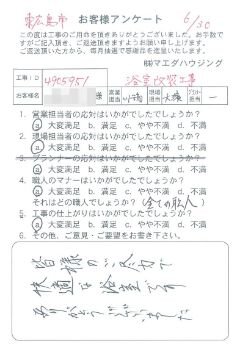 東広島市 お客様アンケート 6/30
この度は工事のご用命を頂きありがとうございました。お手数で
すがご記入頂き、ご返送頂きますようお願い申し上げます。
ご返送頂いた方から、毎月抽選で感謝品を進呈いたします。
㈱マエダハウジング
工事ID 4905951 浴室改装工事
お客様名 様 営業担当 現場担当 プランナー担当 ー
1. 営業担当者の応対はいかがでしたでしょうか?
a 大変満足 b. 満足 c. やや不満 d. 不満
2. 現場担当者の応対はいかがでしたでしょうか?
a 大変満足 b. 満足 c. やや不満 d. 不満
3. プランナーの応対はいかがでしたでしょうか?
a. 大変満足 b. 満足 c. やや不満 d. 不満
4. 職人のマナーはいかがでしたでしょうか?
a 大変満足 b. 満足 c. やや不満 d. 不満
それはどの職人でしょうか?(全ての職人)
5. 工事の仕上がりはいかがでしたでしょうか?
a 大変満足 b. 満足 c. やや不満 d. 不満
6. その他、ご意見・ご要望をお書き下さい。
皆様のご尽力で
快適な浴室です
ありがとうございました